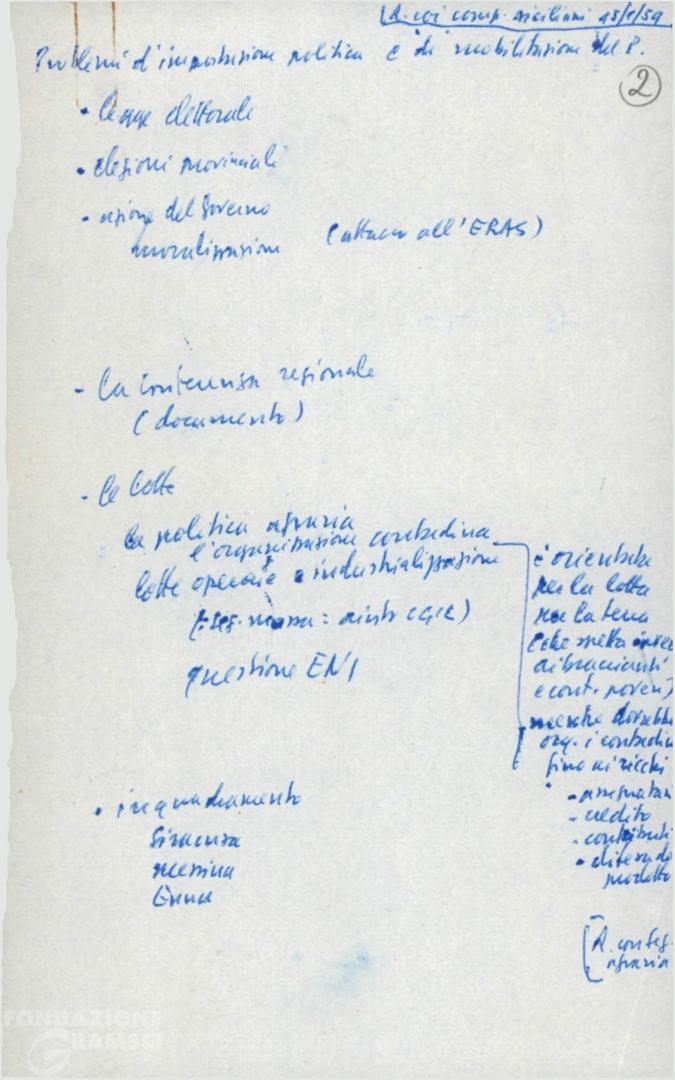 R. coi comp. siciliani 15/1/59
Problemi d'impostazione politica e di mobilitazione del P.
2
• legge elettorale
• elezioni provinciali
- azione del Governo
moralizzazione (attacco all'ERAS)
- la conferenza regionale
(documento)
- le lotte
la politica agraria
e l'organizzazione contadina
lotte operaie e industrializzazione
massa = aiuto CGIL)
questione ENI
è orientata
per la lotta
per la terra
(che spetta invece
ai braccianti
e cont. poveri)
mentre dovrebbe
org. i contadin
fino ai ricchi
- assegnatari
- credito
- contributi
• difesa del
prodotto
[R. con seg.
agraria
• inquadramento
Siracusa
Messina
Enna
FONDAZIONE
GRAMSCI